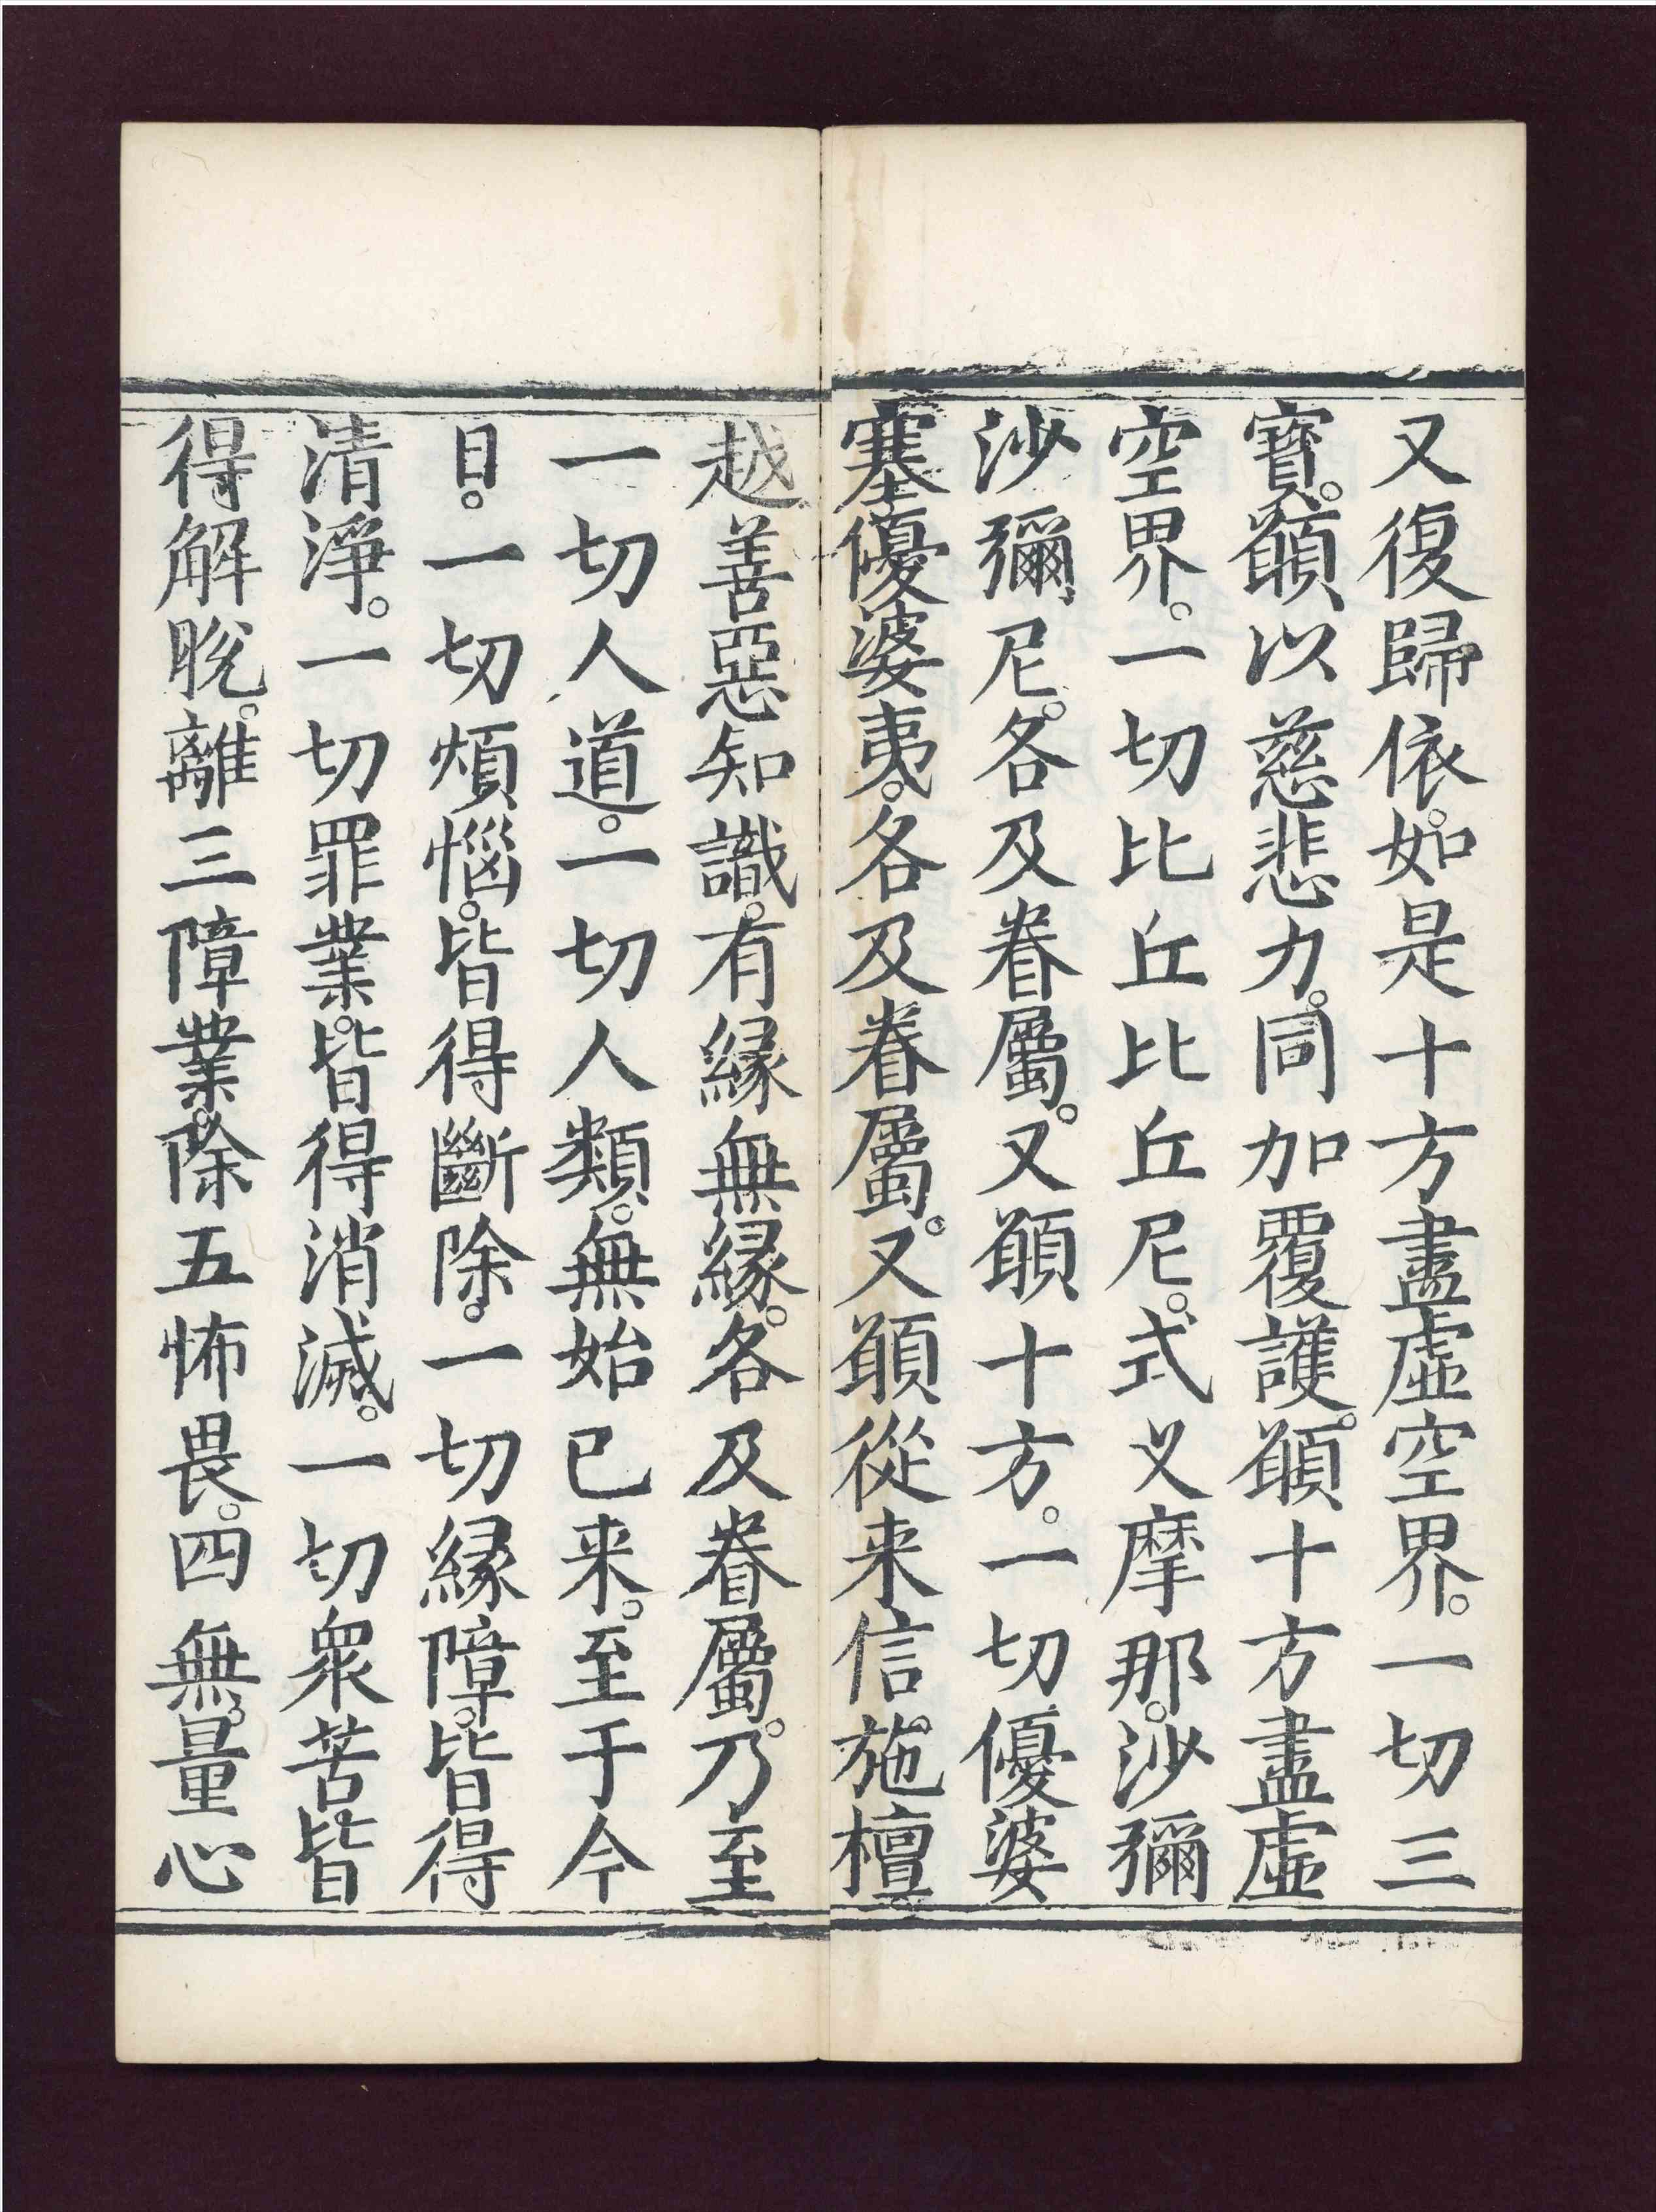 又復歸依。如是十方盡虛空界。一切三
寶。願以慈悲力。同加覆護。願十方盡虛
空界。一切比丘比丘尼。式乂摩那。沙彌
沙彌尼。各及眷屬。又願十方。一切優婆
塞優婆夷。各及眷屬。又願從来信施。檀
越善惡知識。有縁無縁。各及眷屬。乃至
一切人道。一切人類。無始已来。至于今
日。一切煩惱。皆得斷除。一切縁障。皆得
清淨。一切罪業。皆得消滅。一切衆苦。皆
得解脫。離三障業。除五怖畏。四無。量心